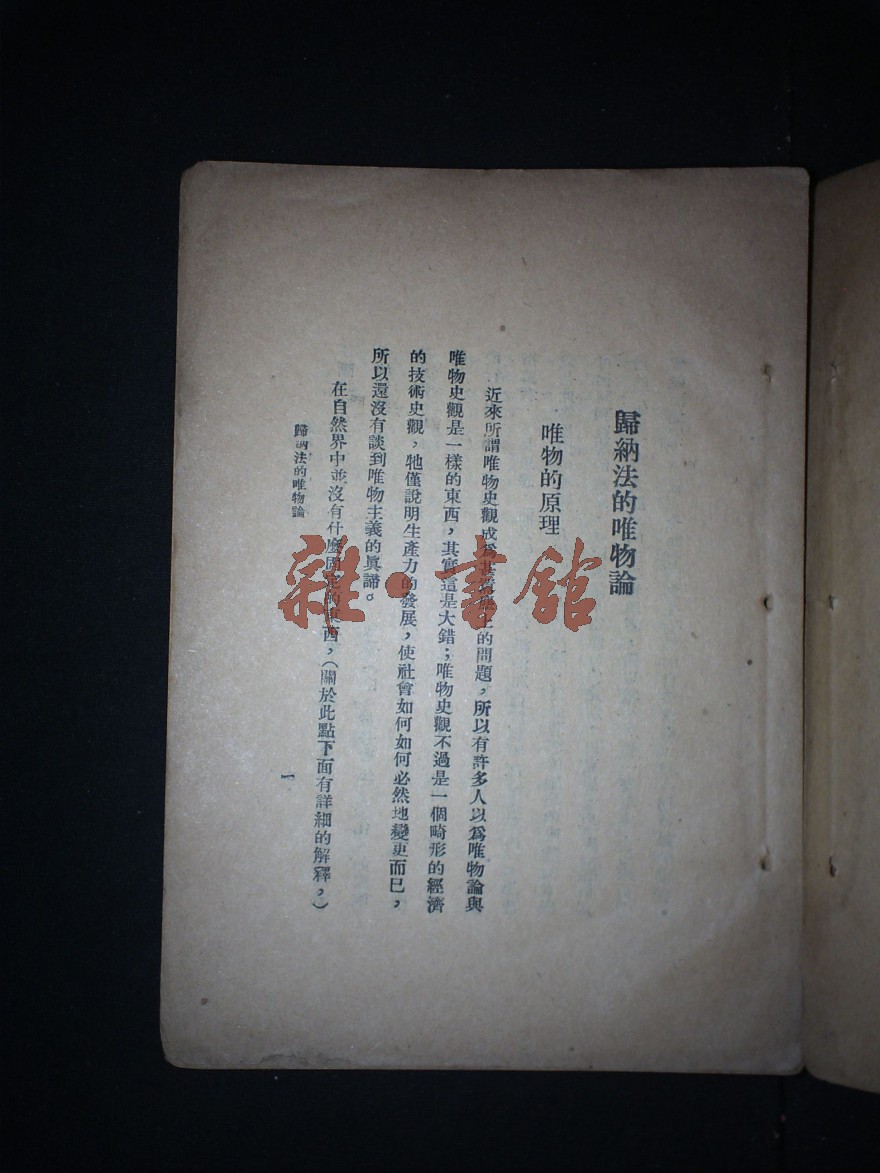 歸納法的唯物論
唯物的原理
近來所謂唯物史觀成爲甚囂塵上的問題，所以有許多人以爲唯物論與
唯物史觀是一樣的東西，其實這是大錯；唯物史觀不過是一個畸形的經濟
的技術史觀，牠僅說明生產力的發展，使社會如何如何必然地變更而已，
所以還沒有談到唯物主義的眞諦。
在自然界中並沒有什麼固定的東西，（關於此點下面有詳細的解釋，）
歸納法的唯物論
一
雜·書館